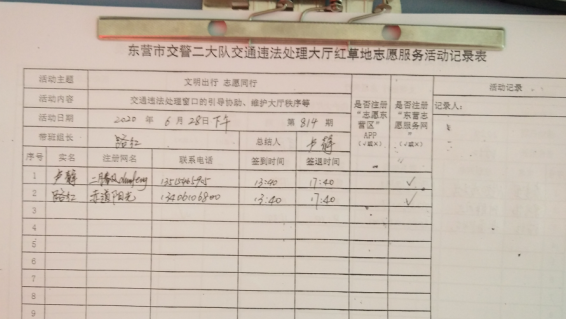 东营市交警二大队交通违法处理大厅红草地志愿服务活动记录表
活动主题 文明出行 志愿同行
活动内容 交通违法处理窗口的引导协助、维护大厅秩序等
活动日期 2020 年 6 月 28日下午 第 814 期
带班组长 总结人 卢静
是否注册“志愿东营区”APP(√或×)
是否注册“东营志愿服务网”(√或×)
活动记录
记录人:
序号 实名 注册网名 联系电话 签到时间 签退时间
1 卢静 13:40 17:40 √
2 赤道阳光 13406106800 13:40 17:40 √
3
4
5
6
7
8
9